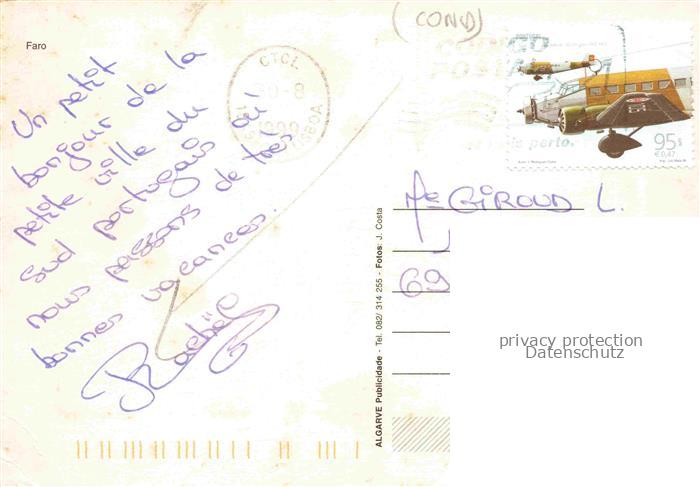 (COND)
Faro
Un petit
bonjour de la
petite ville du
sud portugais où
nous passons de très
bonnes vacances.
Rachel
CTCL
1999
LISBOA
PORTUGAL
95$
€ 0,47
ALGARVE Publicidade - Tel. 082/ 314 255 - Fotos: J. Costa
GIROUD L.
69
privacy protection
Datenschutz